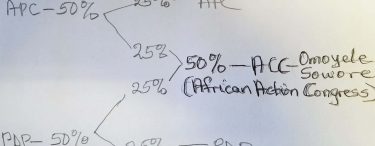 APC-50%
25% APC
25%
50%-ACC-Omoyele
Sowore
25% (African Action Congress)
PDP-50%
25%